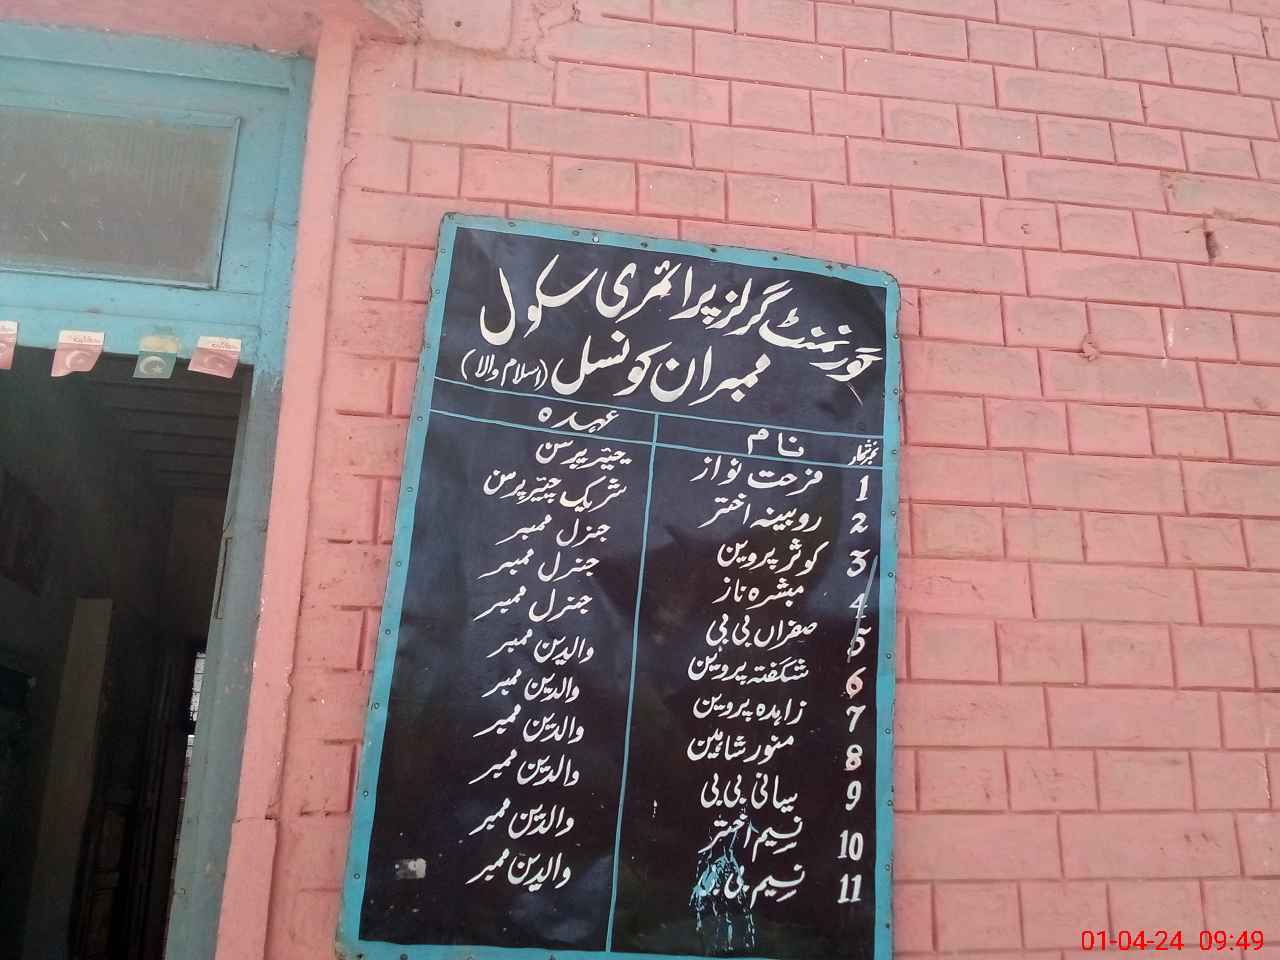 گورنمنٹ گرلز پرائمری سکول
ممبران کونسل (اسلام والا)
نمبرشمار نام عہدہ
1 فرحت نواز چیئرپرسن
2 روبینہ اختر شریک چیئرپرسن
3 کوثر پروین جنرل ممبر
4 مبشرہ ناز جنرل ممبر
5 صفراں بی بی جنرل ممبر
6 شگفتہ پروین والدین ممبر
7 زاہدہ پروین والدین ممبر
8 منور شاہین والدین ممبر
9 بی بی والدین ممبر
10 نسیم اختر والدین ممبر
11 نسیم بی بی والدین ممبر
01-04-24 09:49